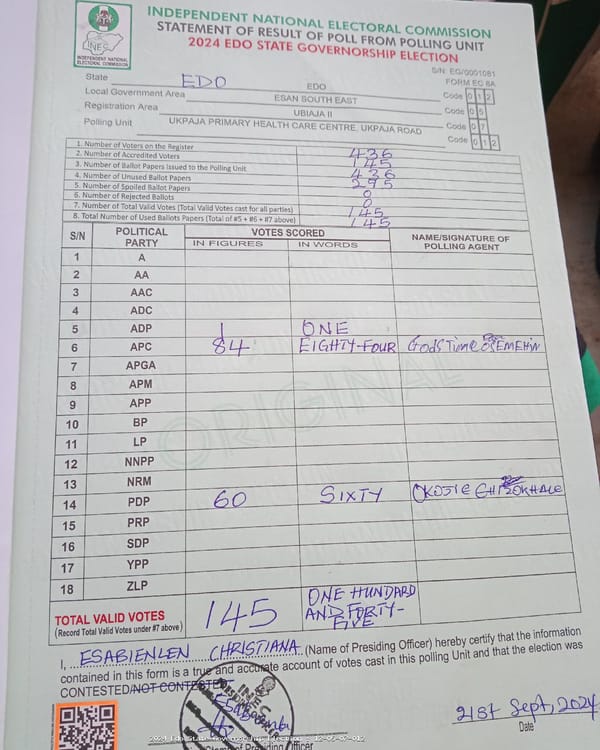 INDEPENDENT NATIONAL ELECTORAL COMMISSION
STATEMENT OF RESULT OF POLL FROM POLLING UNIT
2024 EDO STATE GOVERNORSHIP ELECTION
INEC
INDEPENDENT NATIONAL
ELECTORAL COMMISSION
S/N: EG/0001081
FORM EC 8A
State EDO EDO Code 0 1 2
Local Government Area ESAN SOUTH EAST Code 0 5
Registration Area UBIAJA II Code 0 7
Polling Unit UKPAJA PRIMARY HEALTH CARE CENTRE, UKPAJA ROAD Code 0 1 2
1. Number of Voters on the Register 436
2. Number of Accredited Voters 145
3. Number of Ballot Papers Issued to the Polling Unit 436
4. Number of Unused Ballot Papers 295
5. Number of Spoiled Ballot Papers 0
6. Number of Rejected Ballots 0
7. Number of Total Valid Votes (Total Valid Votes cast for all parties) 145
8. Total Number of Used Ballots Papers (Total of #5 + #6 + #7 above) 145
S/N POLITICAL PARTY VOTES SCORED NAME/SIGNATURE OF POLLING AGENT
IN FIGURES IN WORDS
1 A
2 AA
3 AAC
4 ADC
5 ADP 1 ONE
6 APC 84 EIGHTY-FOUR GodsTime
7 APGA
8 APM
9 APP
10 BP
11 LP
12 NNPP
13 NRM
14 PDP 60 SIXTY OKOJIE
15 PRP
16 SDP
17 YPP
18 ZLP
ORIGINAL
TOTAL VALID VOTES 145 ONE HUNDARD
(Record Total Valid Votes under #7 above) AND FORTY-
FIVE
I, ESABIENLEN CHRISTIANA (Name of Presiding Officer) hereby certify that the information
contained in this form is a true and accurate account of votes cast in this polling Unit and that the election was
CONTESTED/NOT CONTESTED
INEC
21st Sept, 2024
Date
Officer